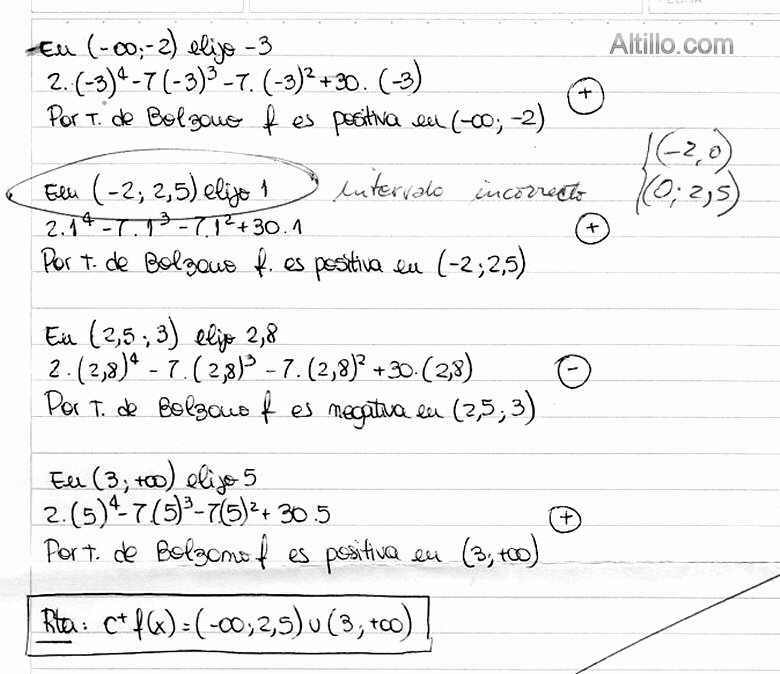 Altillo.com
En (-∞;-2) elijo -3
2.(-3)⁴-7(-3)³-7.(-3)²+30.(-3) +
Por T. de Bolzano f es positiva en (-∞;-2)
En (-2;2,5) elijo 1 intervalo incorrecto {(-2,0) (0;2,5)
2.1⁴-7.1³-7.1²+30.1 +
Por t. de Bolzano f. es positiva en (-2;2,5)
En (2,5;3) elijo 2,8
2.(2,8)⁴-7.(2,8)³-7.(2,8)²+30.(2,8) -
Por T. de Bolzano f es negativa en (2,5;3)
En (3;+∞) elijo 5
2.(5)⁴-7.(5)³-7(5)²+30.5 +
Por t. de Bolzano f es positiva en (3;+∞)
Rta: C⁺f(x)=(-∞;2,5)∪(3;+∞)